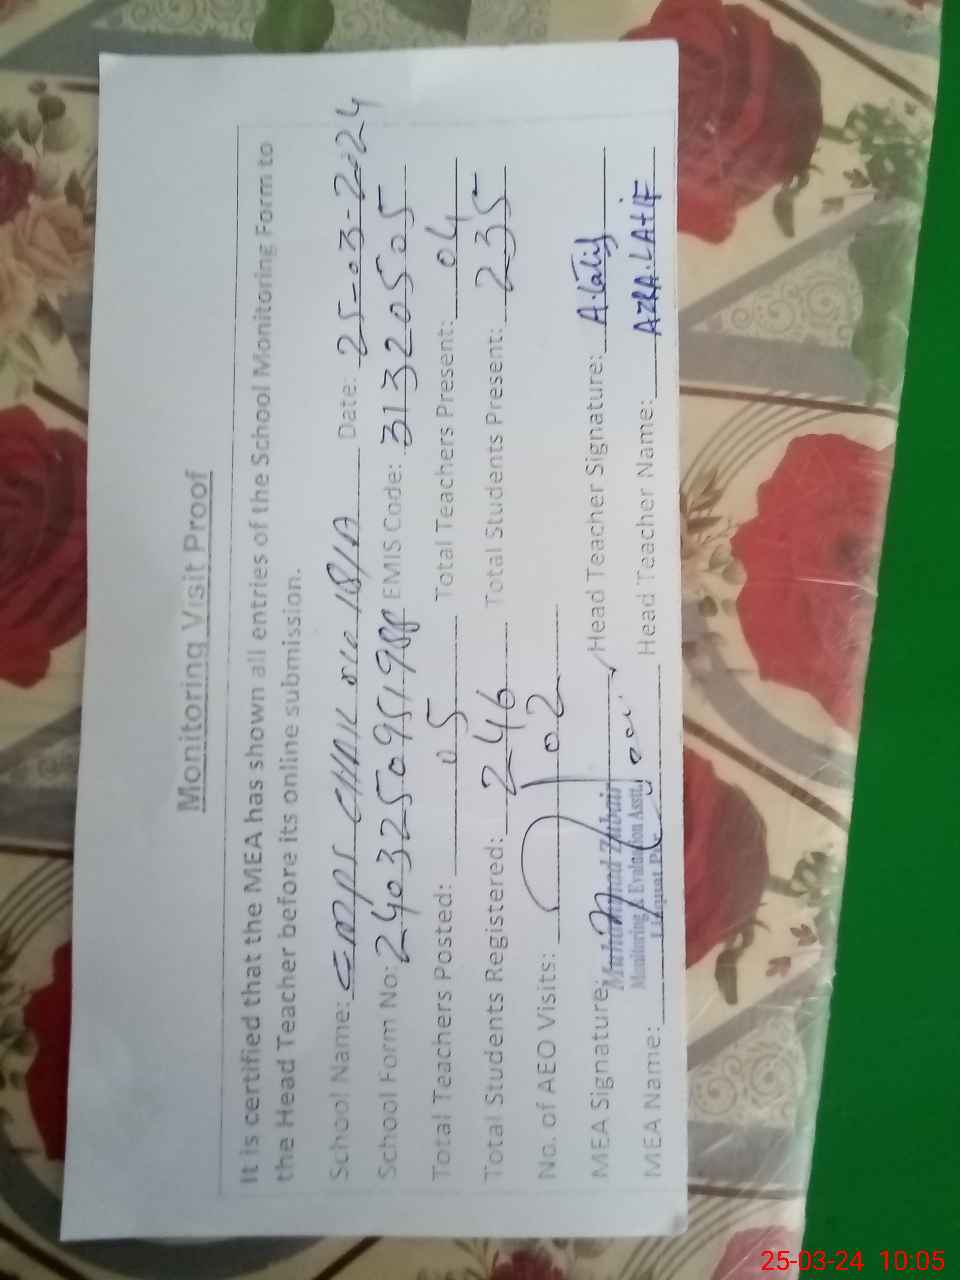 Monitoring Visit Proof
It is certified that the MEA has shown all entries of the School Monitoring Form to
the Head Teacher before its online submission.
School Name: GMPS CHAK NO 18/1A Date: 25-03-2024
School Form No: 240325095198 EMIS Code: 31320505
Total Teachers Posted: 05 Total Teachers Present: 04
Total Students Registered: 246 Total Students Present: 235
No. of AEO Visits: 02
MEA Signature: Head Teacher Signature: A.Latif
Muhammad Zubair
Monitoring & Evaluation Asstt.
Liaquat Pur
MEA Name: Head Teacher Name: AZRA.LAtiF
25-03-24 10:05